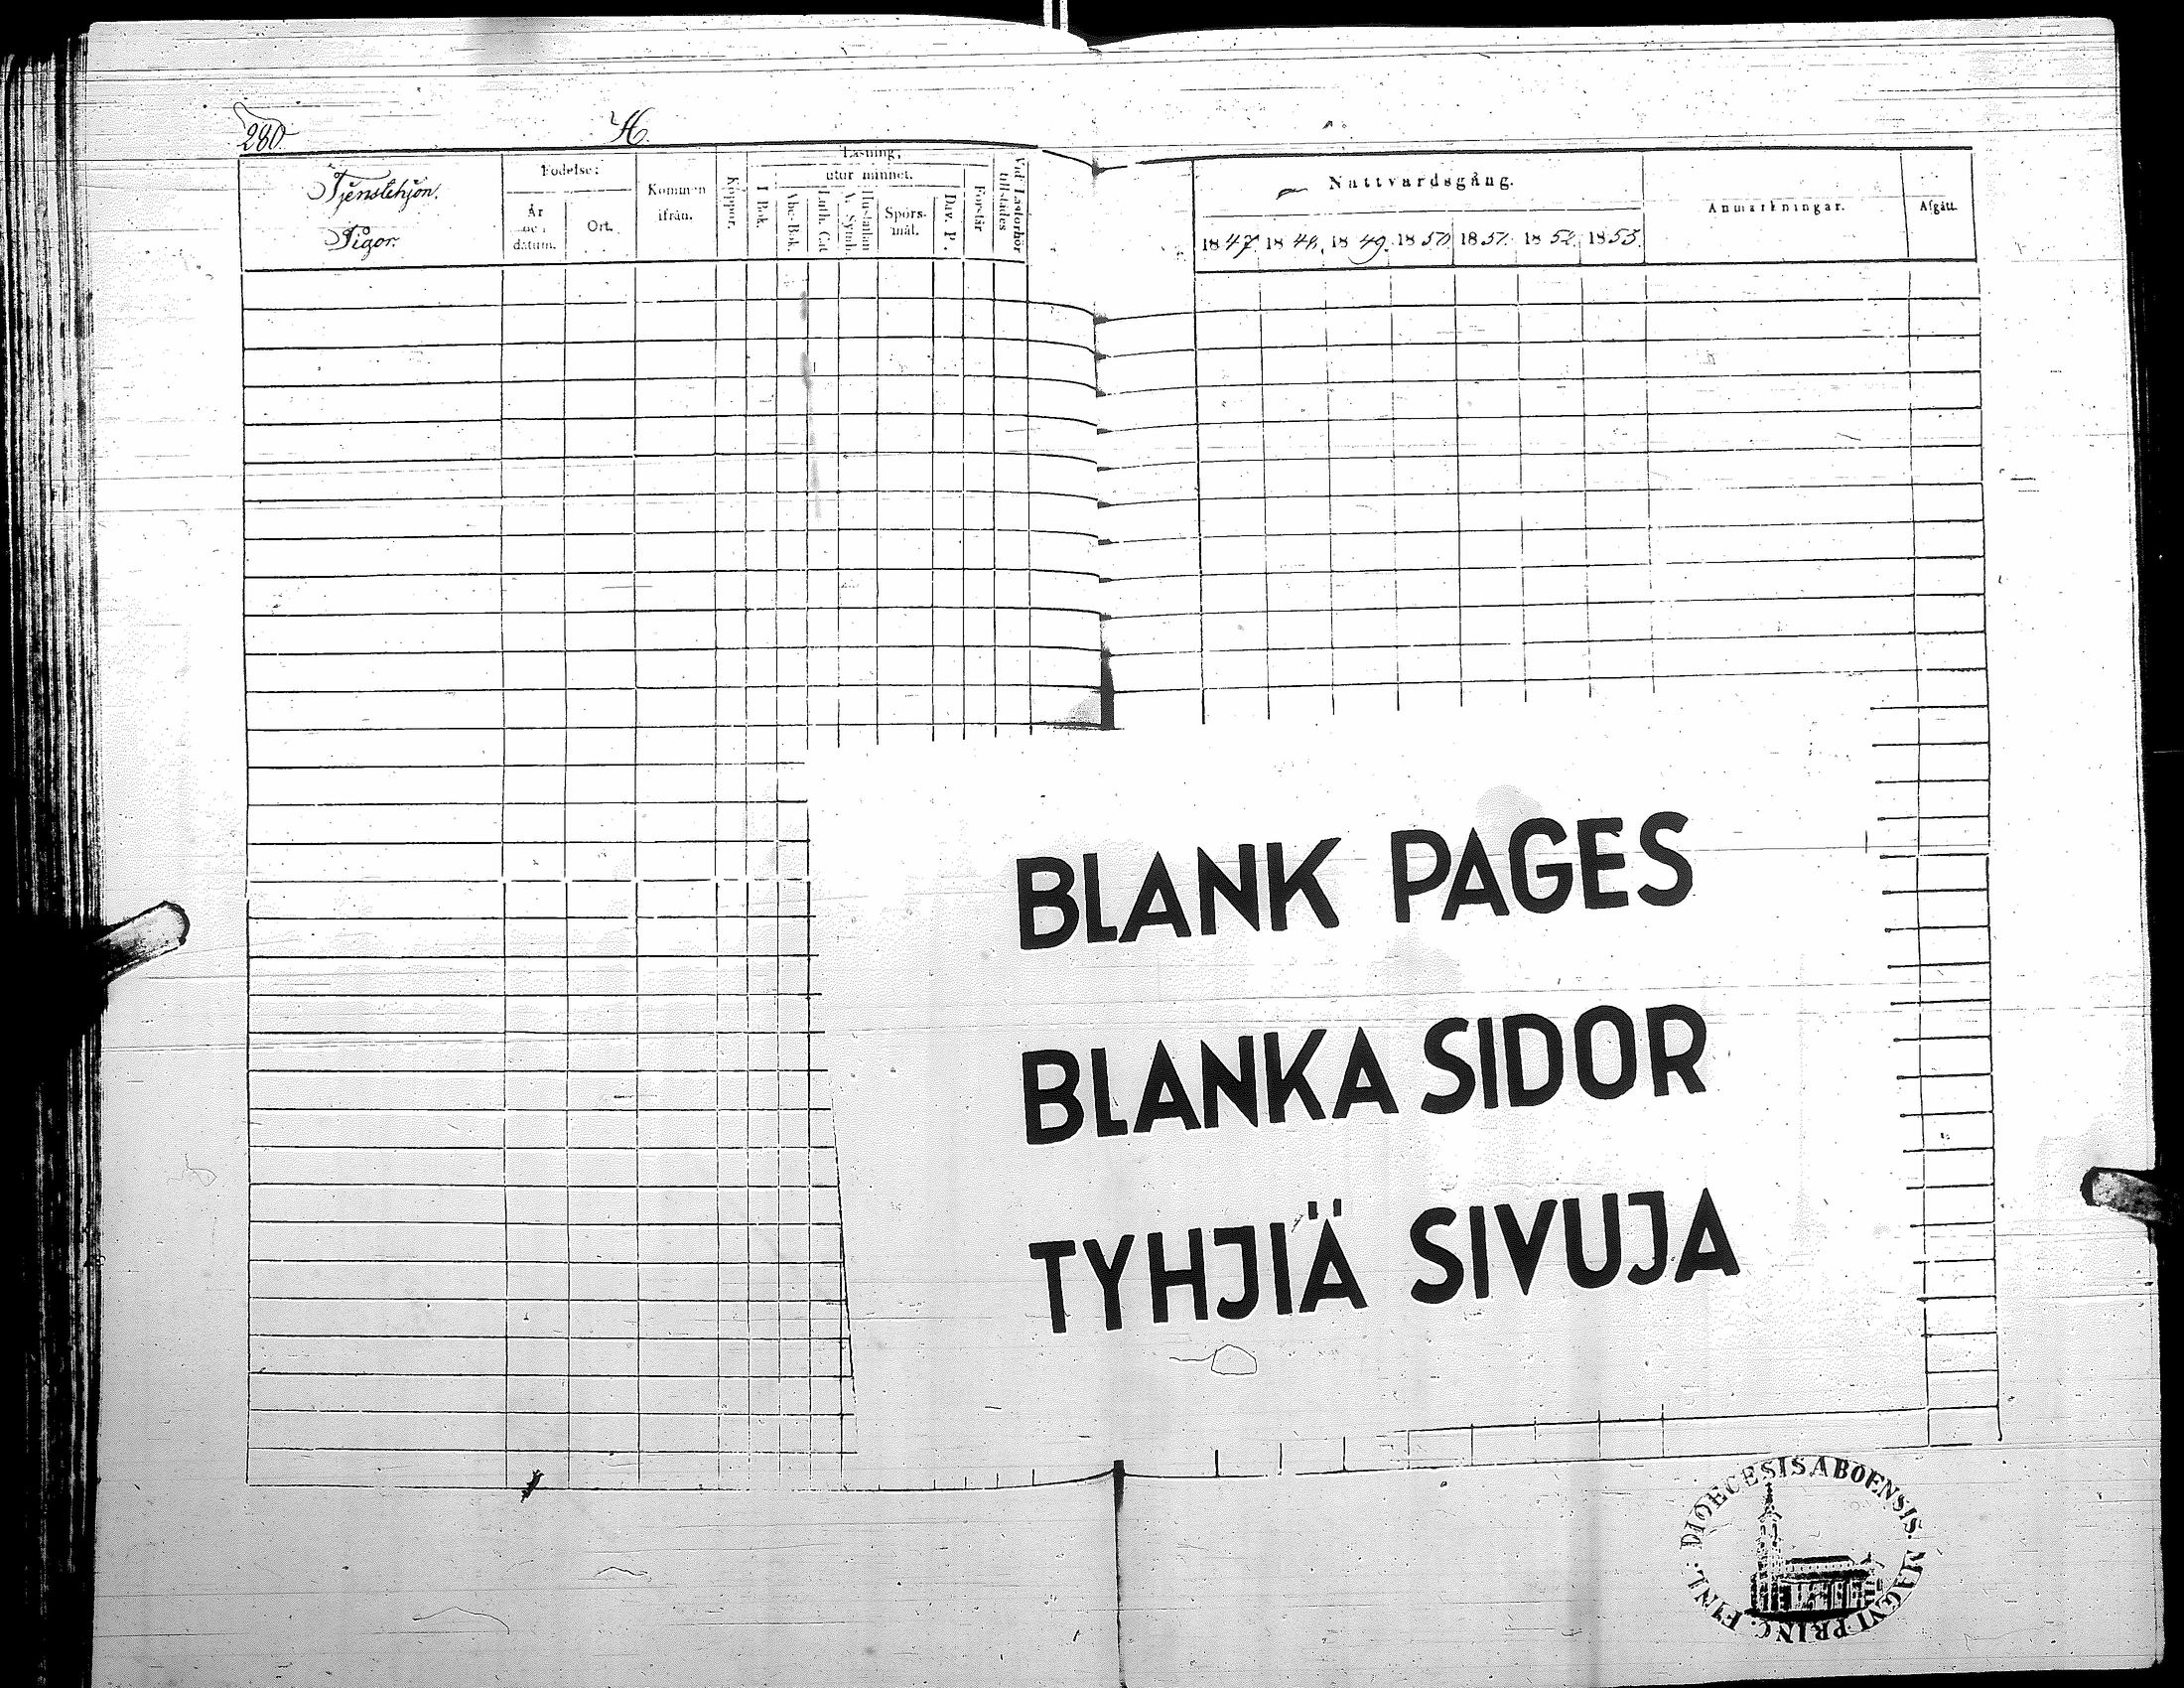 280.
H.
Tjenstehjon.
Pigor.
Födelse:
År
och
datum.
Ort.
Kommen
ifrån.
Koppor.
Läsning,
utur minnet.
I Bok.
Abc-Bok.
Luth. Cat
A. Symb.
Hustaflan
Spörs-
mål.
Dav. P.
Förstår
Vid Läsförhör
tillstädes
Nattvardsgång.
1847. 1848. 1849. 1850 1851. 1852. 1853.
Anmärkningar.
Afgått.
BLANK PAGES
BLANKA SIDOR
TYHJIÄ SIVUJA
DIOECESIS ABOENSIS. MAGNI PRINC. FINL: